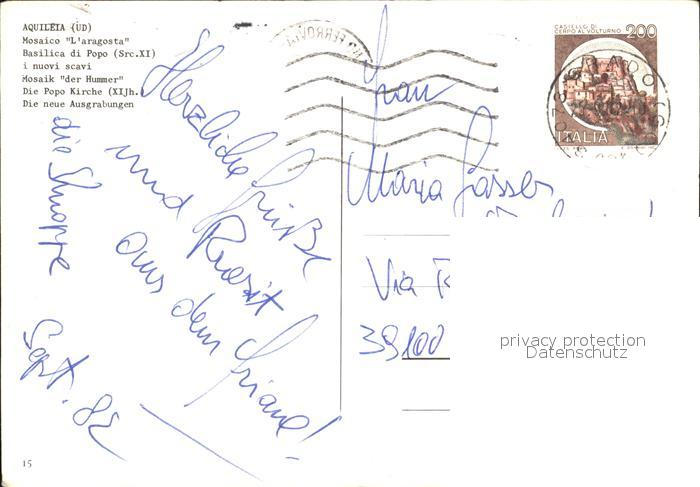 AQUILEIA (UD)
Mosaico "L'aragosta"
Basilica di Popo (Src.XI)
i nuovi scavi
Mosaik "der Hummer"
Die Popo Kirche (XIJh.
Die neue Ausgrabungen
Herzliche Grüße
und Prosit
aus dem Friaul!
die
Sept. 82
15
CASTELLO DI
CERRO AL VOLTURNO
200
ITALIA
Frau
Maria Gasser
Via
39100
privacy protection
Datenschutz